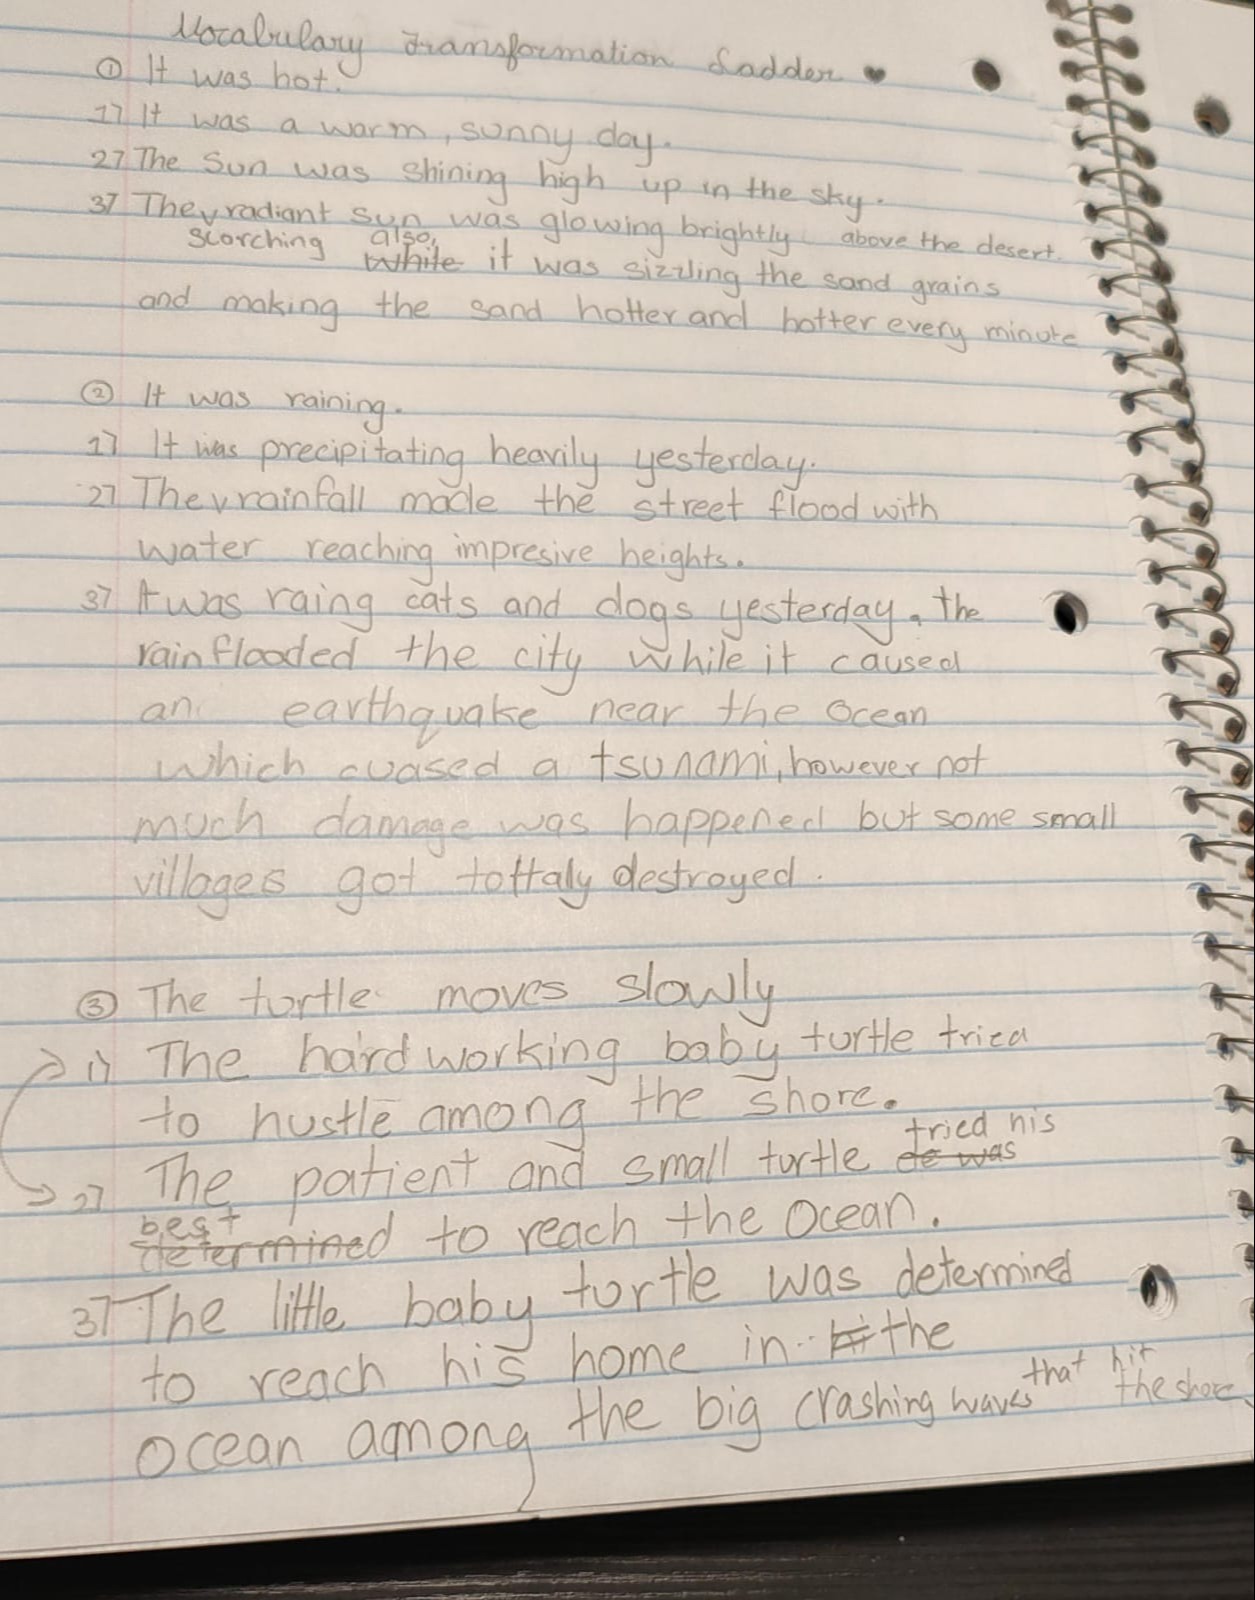 Vocabulary Transformation Ladder ♥
① It was hot.
1) It was a warm, sunny day.
2) The sun was shining high up in the sky.
3) The radiant sun was glowing brightly above the desert.
scorching also,
while it was sizzling the sand grains
and making the sand hotter and hotter every minute
② It was raining.
1) It was precipitating heavily yesterday.
2) The rainfall made the street flood with
water reaching impresive heights.
3) It was raing cats and dogs yesterday. The
rain flooded the city while it caused
an earthquake near the ocean
which cuased a tsunami, however not
much damage was happened but some small
villages got tottaly destroyed.
③ The turtle moves slowly
1) The hard working baby turtle tried
to hustle among the shore.
tried his
2) The patient and small turtle de was
best
determined to reach the ocean.
3) The little baby turtle was determined
to reach his home in the
that hit
ocean among the big crashing waves the shore